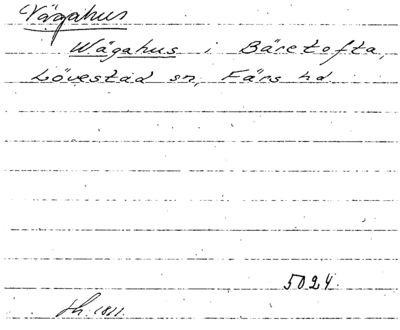 Vägahus
Wägahus i Bäretofta,
Lövestad sn, Färs hd.
5024.
1811.